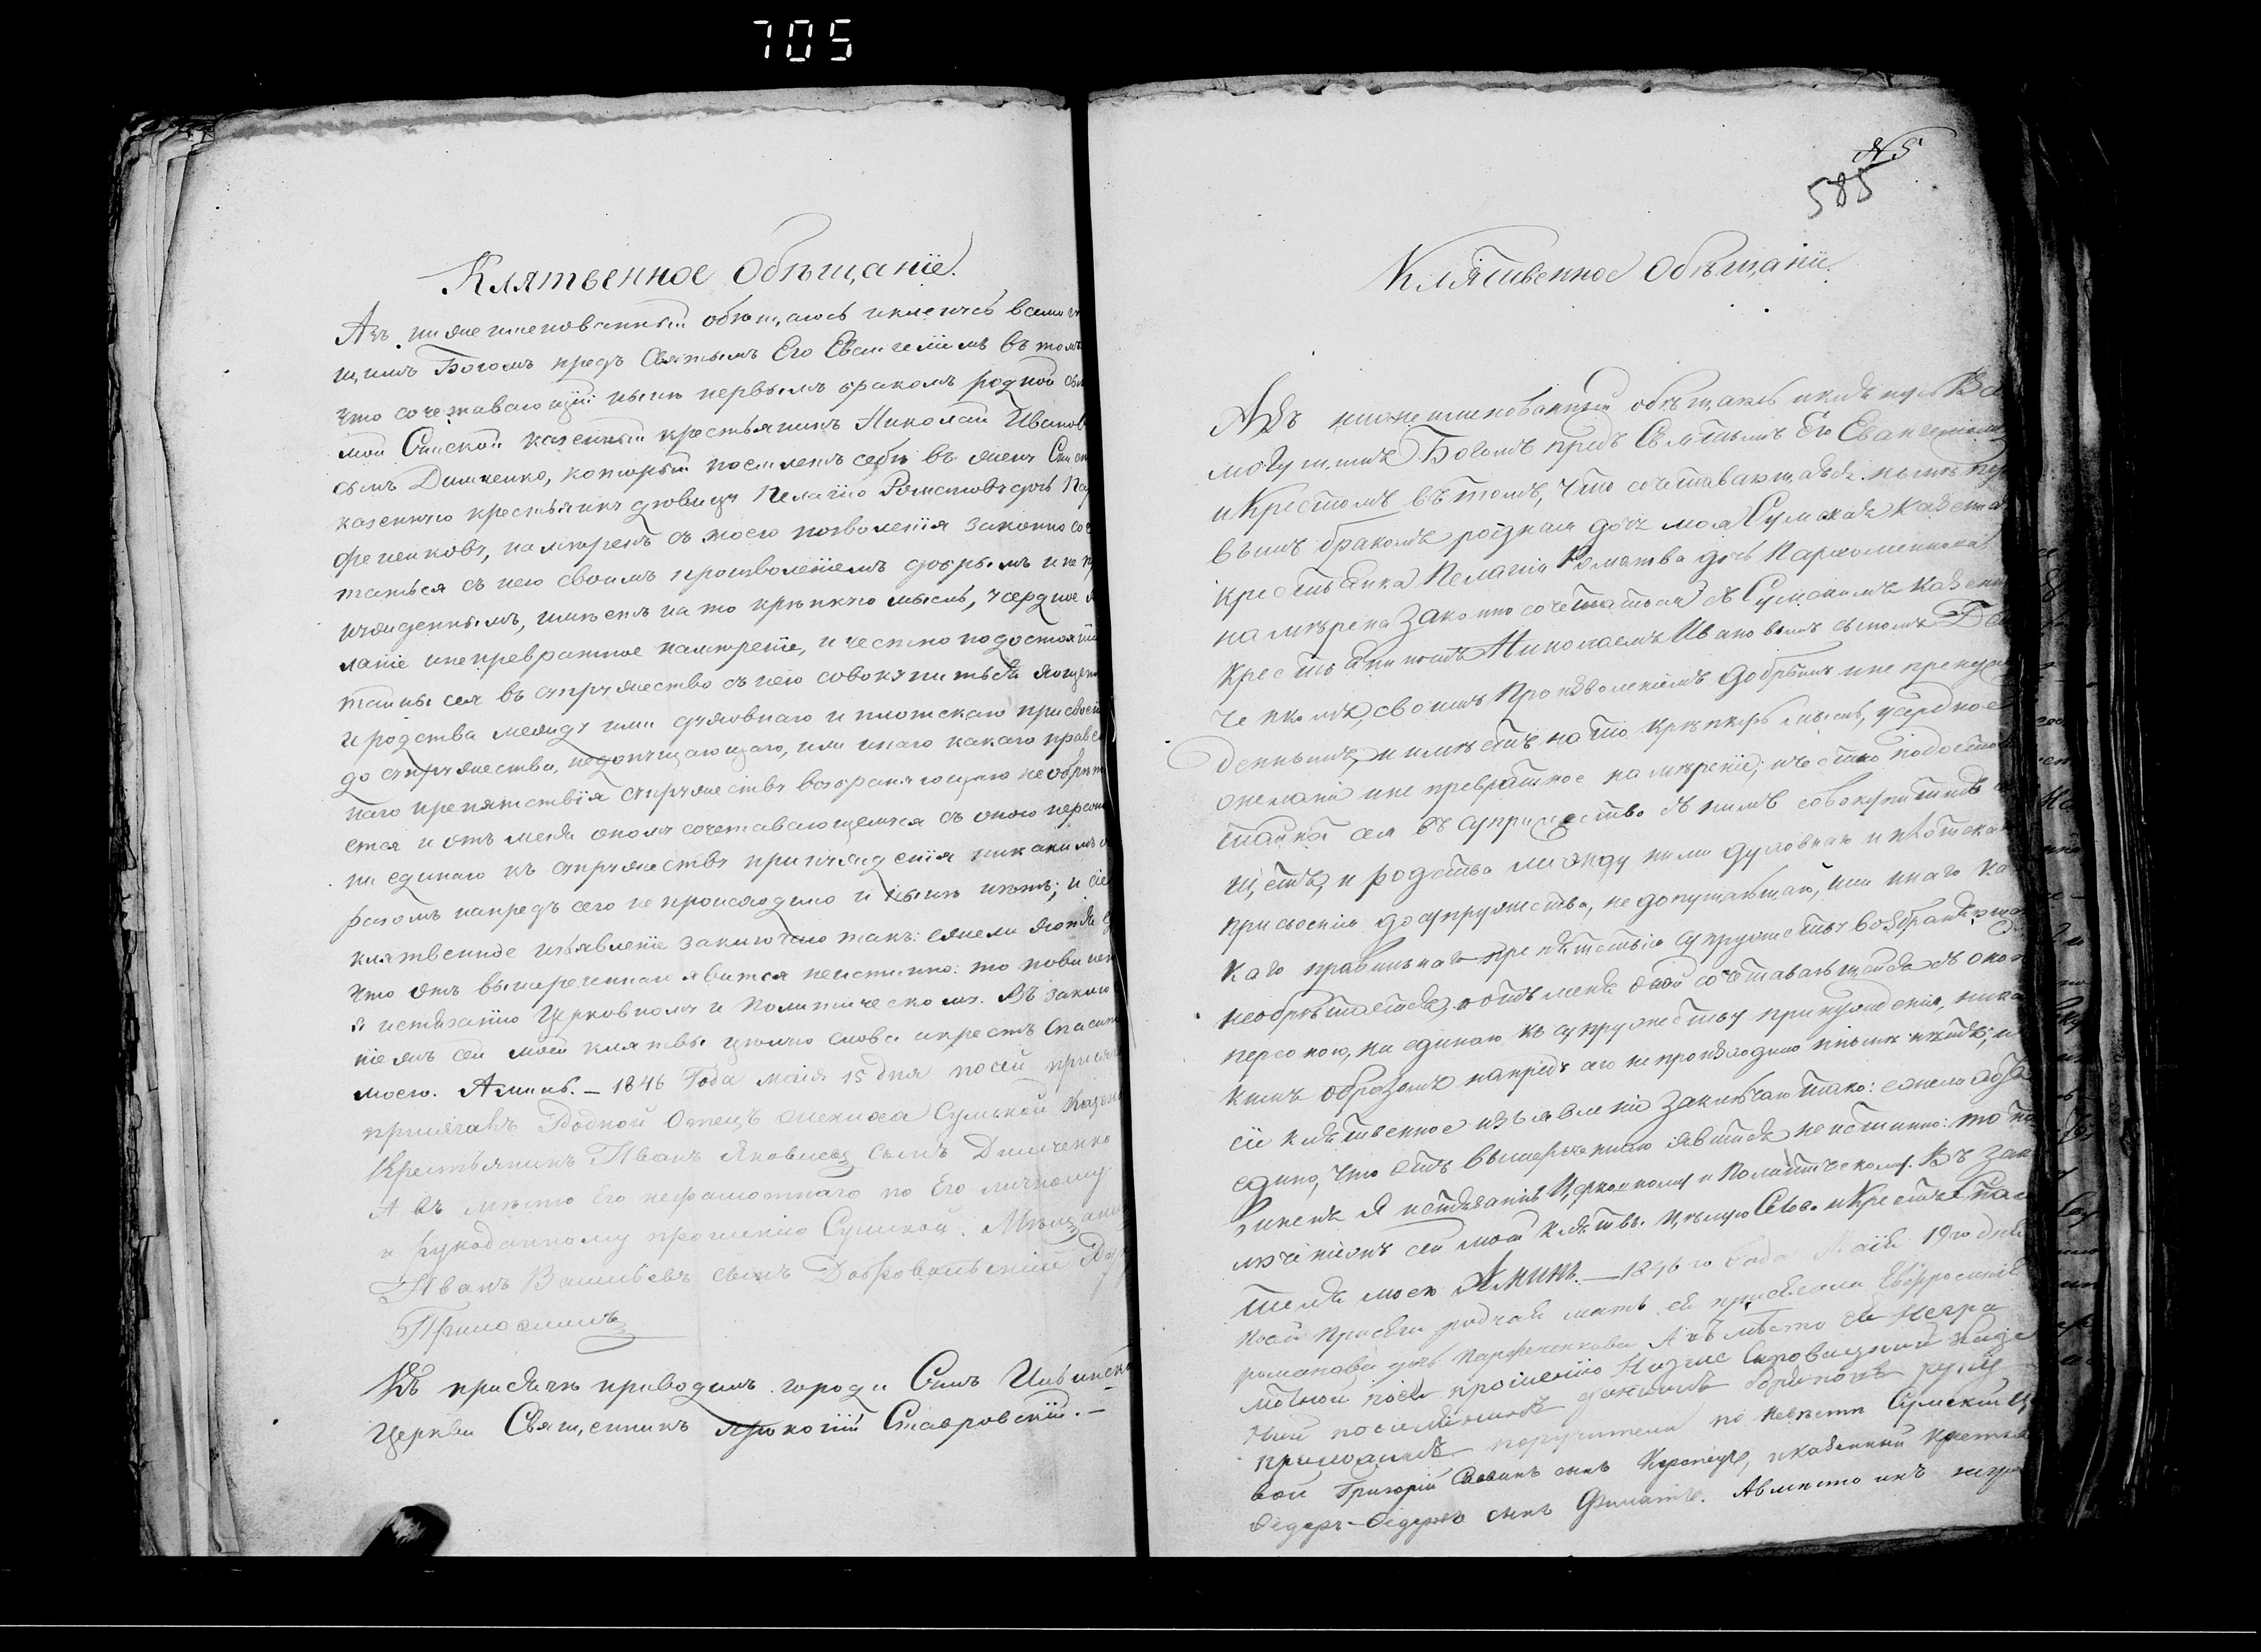 705
Клятвенное Обѣщаніе.
Азъ нижеименованный обѣщаюсь и кленусь всемогу
щимъ Богомъ предъ Святымъ Его Евангеліемъ въ томъ
что сочетавающій нынѣ первымъ бракомъ родной сынъ
мой Сумской казенный крестьянинъ Николай Иванов
сынъ Димченко, который поемлетъ себѣ въ жену
казенную крестьянку дѣвицу Пелагію Романову дочь Пар
фененкову, намѣренъ съ моего позволенія законно соче
таться съ нею своимъ произволеніемъ добрымъ и не пр
инужденнымъ, имѣетъ на то крѣпкую мысль, усердное ж
ланіе и непревратное намѣреніе, и честно подостоян
тайны сея въ супружество съ нею совокупиться хощетъ
и родства между ими духовнаго и плотскаго присвоен
до супружества, недопущающаго, или инаго какаго правел
наго препятствія супружеству возбраняющаго не обрета
ется и отъ меня оному сочетавающемуся съ оною персон
ни единаго къ супружеству принужденія никакимъ об
разомъ напредъ сего не происходило и нынѣ нѣтъ; и сіе
клятвенное изъявленіе заключаю такъ: ежели хотя е
что отъ вышереченнаго явится неистинно: то повинен
я истязанію Церковному и Политическому. Въ заклю
ніе жъ сей моей клятвы цѣлую слова и крестъ Спасите
моего. Аминь. – 1846 Года маія 15 дня посей прися
присягалъ Родной Отецъ жениха Сумской Казен
Крестьянинъ Иванъ Яковлевъ сынъ Димченко
А въ мѣсто Его неграмотнаго по Его личному
и рукоданному прошенію Сумской Мѣщанин
Иванъ Васильевъ сынъ Добровольскій Руку
Приложилъ
Къ присягѣ приводилъ города Сумъ Ильинской
Церкви Священникъ Прокопій Ставровскій. –
N 5
585
Клятвенное Обѣщаніе.
Азъ нижеименованный обѣщаюсь и кленусь Все
могущимъ Богомъ предъ Святымъ Его Евангеліем
и Крестомъ въ томъ, что сочетавающаяся нынѣ пер
вымъ бракомъ родная дочь моя Сумская казенная
крестьянка Пелагія Романова дочь Пархоменкова
намѣрена законно сочетаться съ Сумскимъ казенн
крестьяниномъ Николаемъ Ивановымъ сыномъ Дем
ченкомъ, своимъ произволеніемъ добрымъ и не принуж
деннымъ, и имѣетъ на то крѣпкую мысль, усердное
желаніе и не превратное намѣреніе, и честно подостоя
тайны сея въ супружество съ нимъ совокупиться хо
щетъ, и родства между ними духовнаго и плотскаго
присвоенія до супружества, не допущающаго, или инаго ка
каго правильнаго препятствія супружеству возбраняюща
необрѣтается, и отъ меня оной сочетавающейся съ оною
персоною, ни единаго къ супружеству принужденія, ника
кимъ образомъ напредъ сего не происходило и нынѣ нѣтъ; и
сіе клятвенное изъявленіе заключаю тако: ежели хотя
едино, что отъ вышереченнаго явится неистинно: то по
виненъ я истязанію Церковному и Политическому. Въ зак
люченіежъ сей моей клятвы цѣлую Слова и Крестъ Спаси
теля моего Аминь. – 1846го Года Маія 19го дня
посей присяги родная мать ея присягала Евфросинія
романова дочь Парфененкова А въ мѣсто ея негра
мотной посея прошенію Нижне Сыроватский казе
ный
приложилъ поручители по невѣсти Сумский
вой Григорій Савинъ сынъ и казенный крестья
Федоръ Федоровъ сынъ Филатъ. Авместо ихъ негра